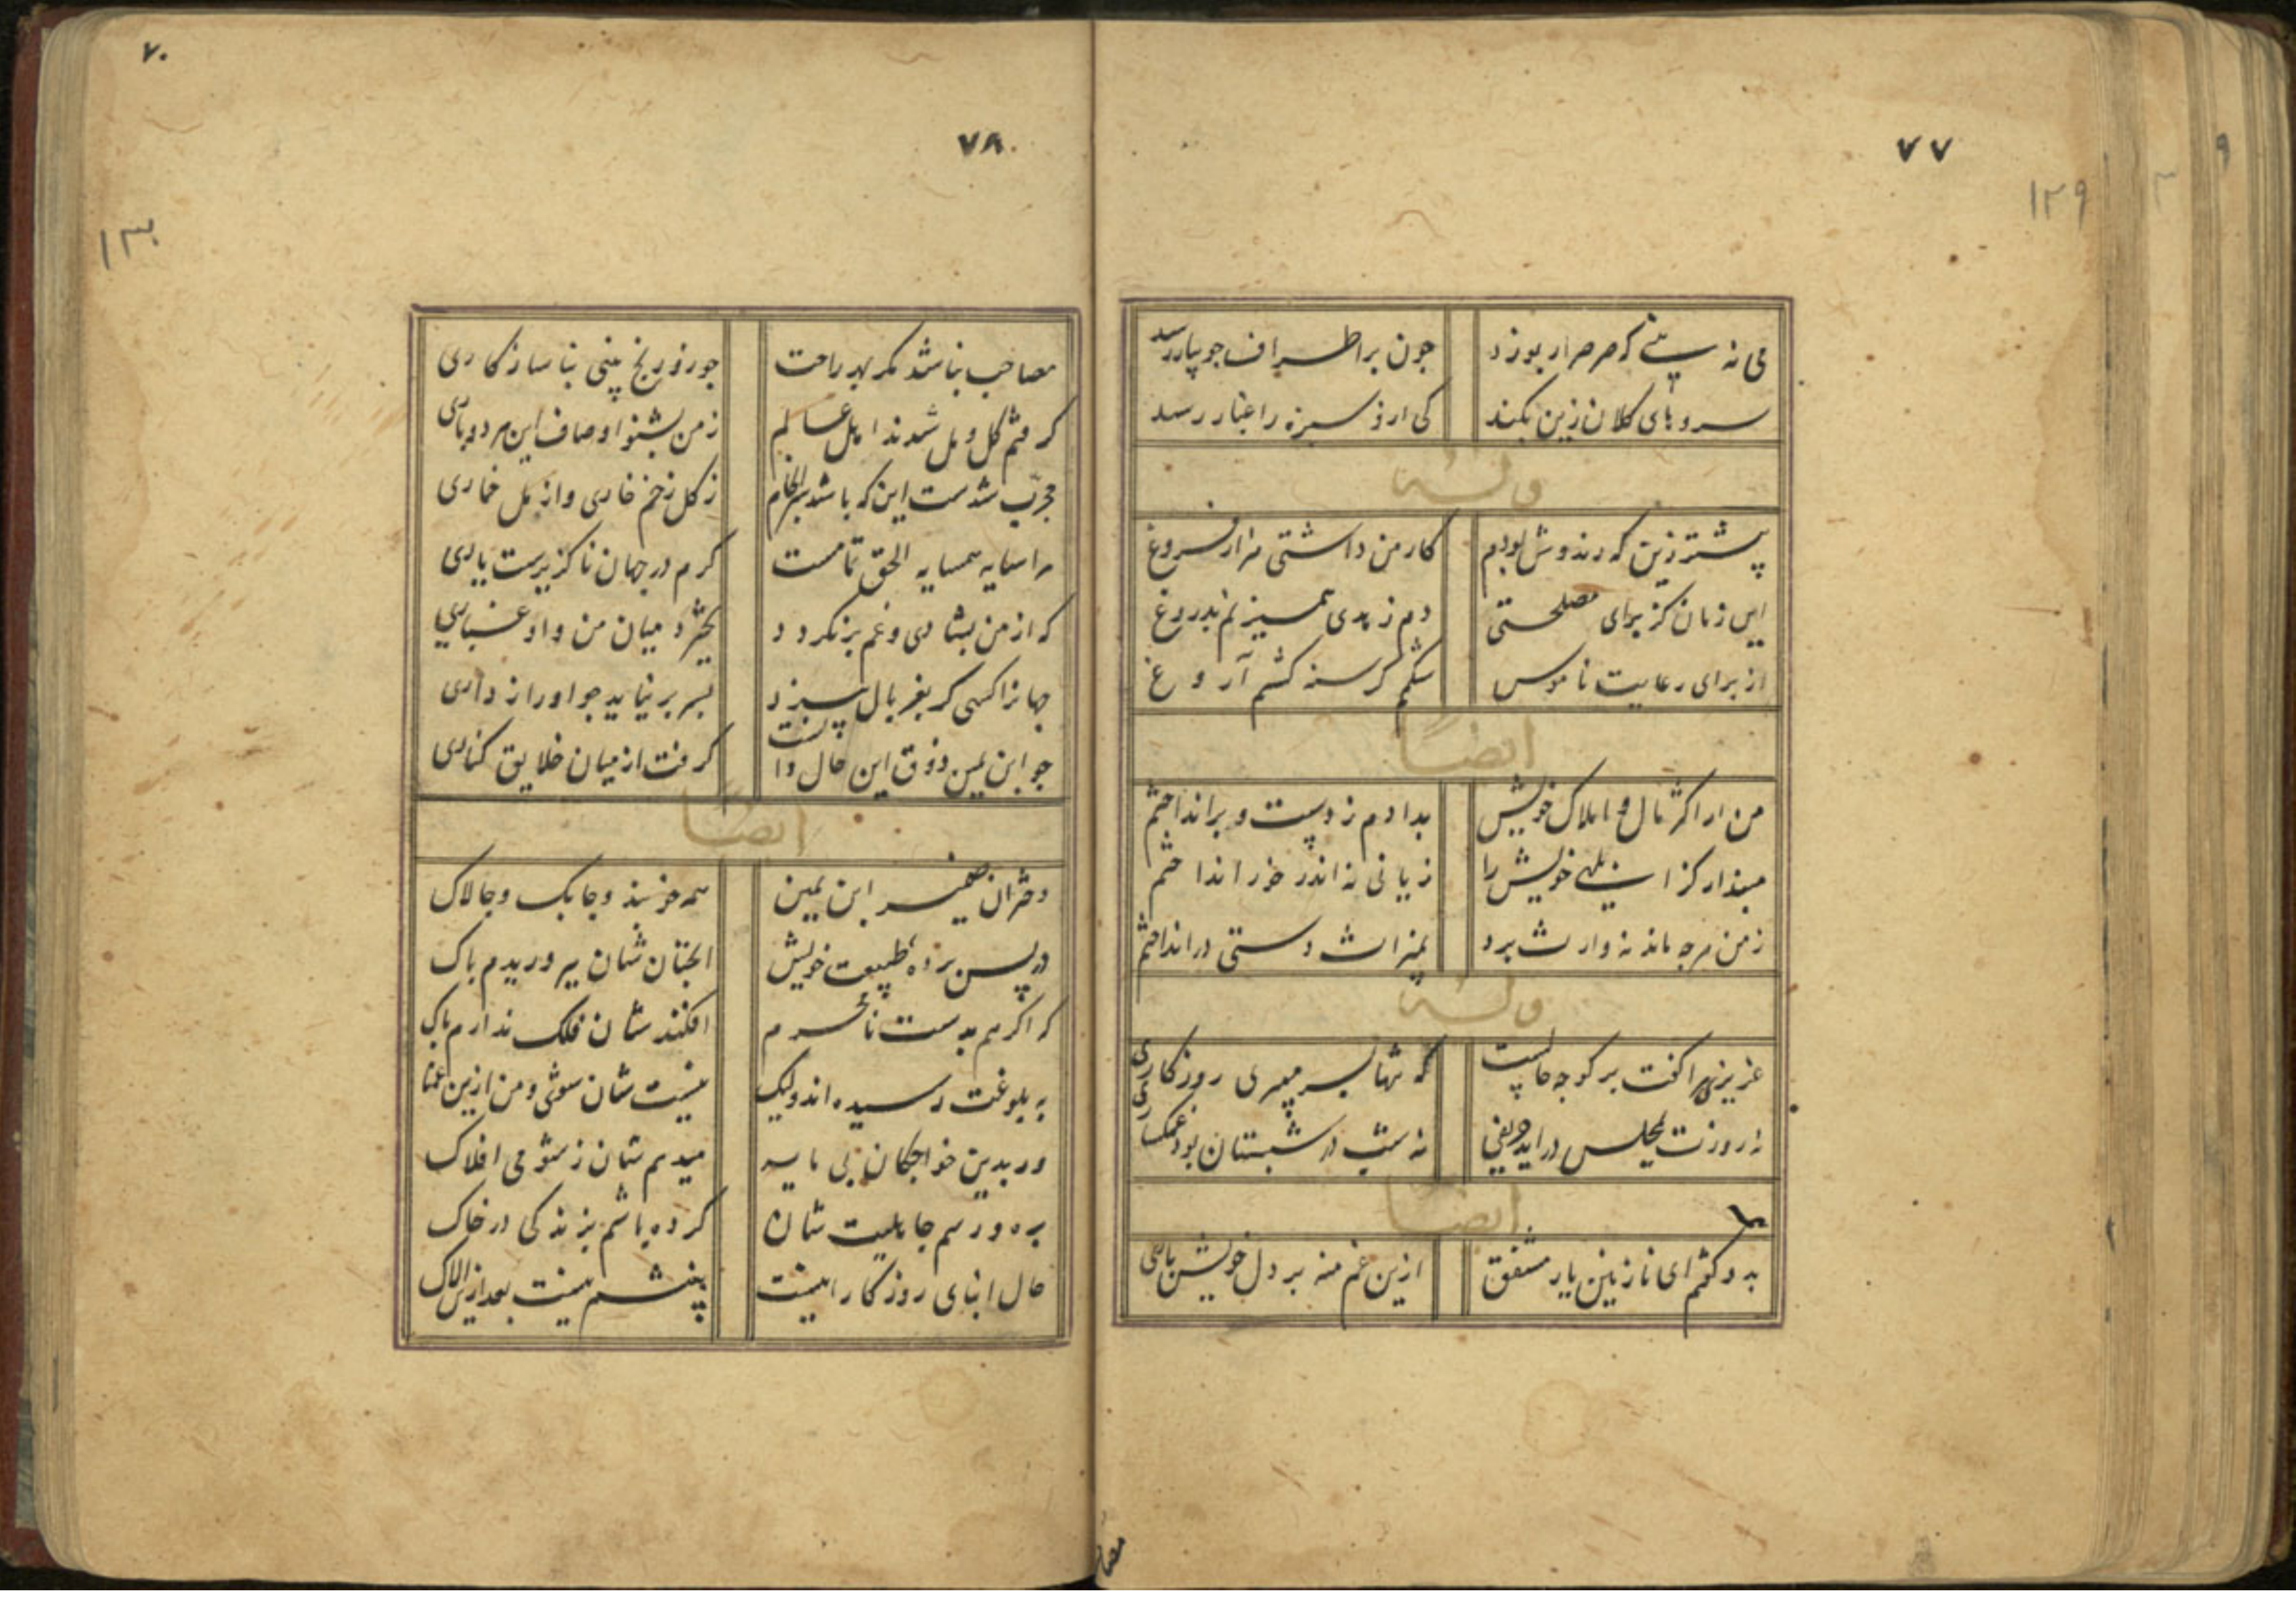 ۷۷
۱۲۹
می نه بینی که صرصر ار بوزد
چون بر اطراف جویبار رسد
سروهای کلان زبن بکند
کی ازو سبزه را غبار رسد
وله
پیشتر زین که رند وش بودم
کار من داشتی هزار فروغ
این زمان کز برای مصلحتی
دم ز زهدی همی زنم بدروغ
از برای رعایت ناموس
شکم گرسنه کشم آروغ
ایضا
من ار اکثر مال و املاک خویش
بدادم ز دست و برانداختم
مپندار کز ابلهی خویش را
زیانی نه اندر خور انداختم
ز من هرچه ماند نه وارث برد
بمیراث دستی در انداختم
وله
عزیزی مرا گفت برگو چه حالست
که تنها بسر میبری روزگاری
نه روزت بمجلس در آید حریفی
نه شب در شبستان بود غمگساری
ایضا
بدو گفتم ای نازنین یار مشفق
ازین غم منه بر دل خویش باری
مصا
۷۰
۷۸
۱۳۰
مصاحب نباشد مگر بهر راحت
چو زو رنج بینی بناسازکاری
گرفتم گل و مل شدند اهل عالم
ز من بشنو اوصاف این هر دو باری
مجرب شدست این که باشد سرانجام
ز گل زخم خاری و از مل خماری
مرا سایه همسایه الحق تمامست
گرم در جهان ناگزیرست یاری
که از من بشادی و غم برنگردد
نخیزد میان من و او غباری
جهانرا کسی گر بغربال بیزد
بسر بر نیاید چو او رازداری
چو ابن یمین ذوق این حال دانست
گرفت از میان خلایق کناری
ایضا
دختران ضمیر ابن یمین
همه خوبند و چابک و چالاک
در پس پرده طبیعت خویش
آنچنان شان بپروریدم پاک
که اگرهم بدست نامحرم
افکندشان فلک ندارم باک
به بلوغت رسیده اند ولیک
نیست شان شوی و من ازین غمناک
ور بدین خواجگان بی مایه
میدهم شان ز شومی افلاک
بره و رسم جاهلیت شان
کرده باشم بزندگی در خاک
حال ابنای روزگار اینست